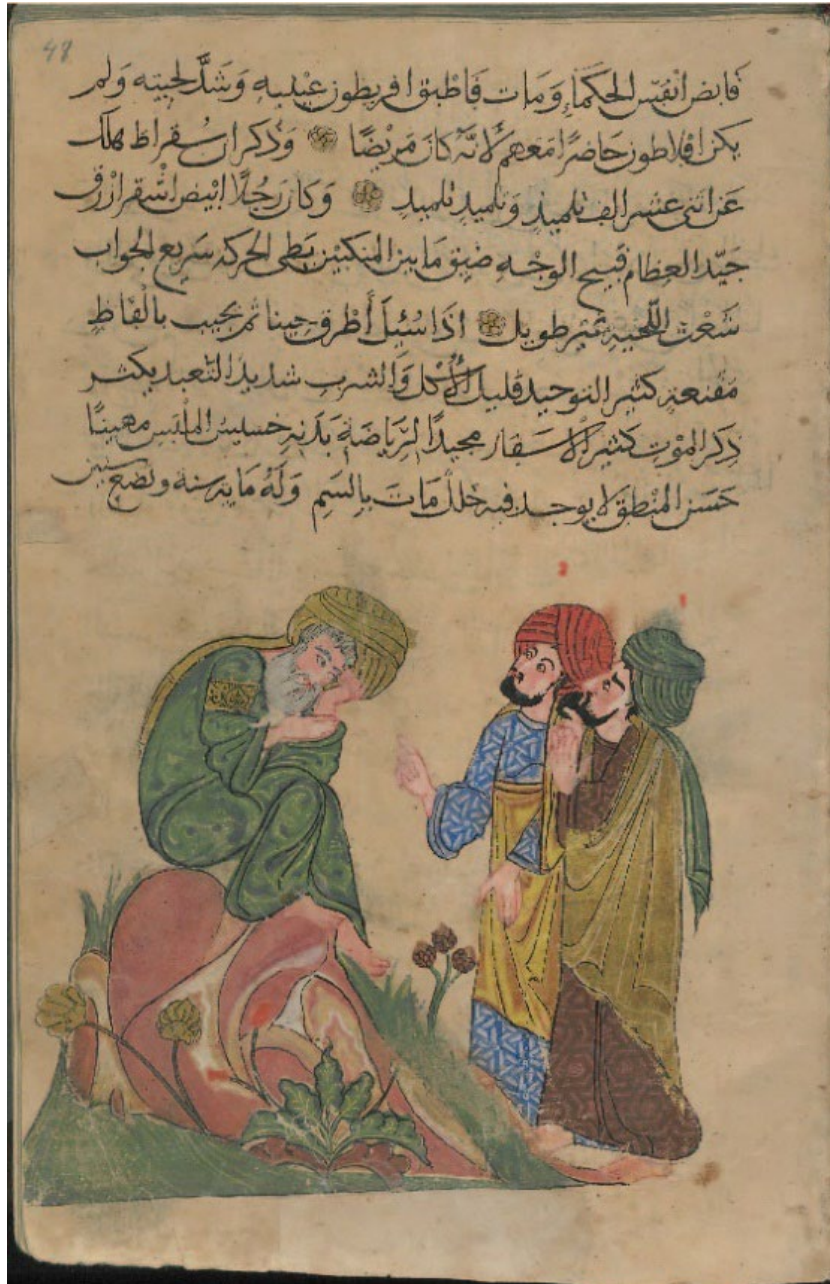 48
قابض انفس الحكماء ومات فاطبق اقريطون عينيه وشد لحييه ولم
يكن افلاطون حاضرا معهم لانه كان مريضا وذكر ان سقراط هلك
عن اثنى عشر الف تلميذ وتلميذ تلميذ وكان رجلا ابيض اشقر ازرق
جيد العظام قبيح الوجه ضيق ما بين المنكبين بطى الحركه سريع الجواب
شعث اللحيه غير طويل اذا سئل أطرق حينا ثم يجيب بالفاظ
مقنعة كثير التوحيد قليل الأكل والشرب شديد التعبد يكثر
ذكر الموت كثير الاسفار مجيدا لرياضة بدنه خسيس الملبس مهيبا
حسن المنطق لا يوجد فيه خلل مات بالسم وله ماية سنة وبضع سنين